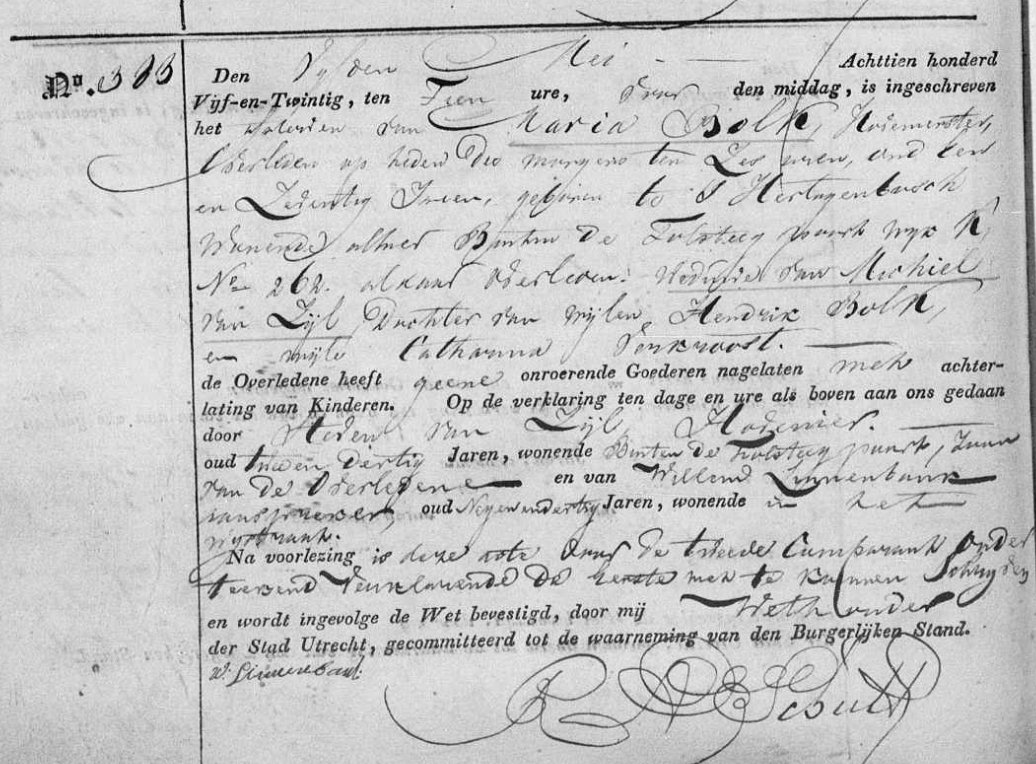 No. 383
Den Vyfden Mei Achttien honderd
Vijf-en-Twintig, ten Tien ure, voor den middag, is ingeschreven
het Overleden van Maria Bolk, Hovenierster,
Overleden op heden des morgens ten Zes uren, oud Een
en Zeventig Jaren, geboren te S Hertogenbosch
Wonende alhier Buiten de Tolsteeg poort wyk N
No 262. aldaar Overleden. Weduwe van Machiel
van Zyl, Dochter van wylen Hendrik Bolk,
en wyle Catharina
de Overledene heeft geene onroerende Goederen nagelaten met achter-
lating van Kinderen. Op de verklaring ten dage en ure als boven aan ons gedaan
door van Zyl, Hovenier.
oud twee en Dertig Jaren, wonende Buiten de Tolsteeg poort, Zoon
van de Overledene en van Willem Linnenbank
aanspreker oud Negenendertig Jaren, wonende in het
Na voorlezing is deze acte door de tweede Comparant onder
teekend Verklarende de Eerste niet te kunnen Schryven
en wordt ingevolge de Wet bevestigd, door mij Wethouder
der Stad Utrecht, gecommitteerd tot de waarneming van den Burgerlijken Stand.
W. Linnenbank